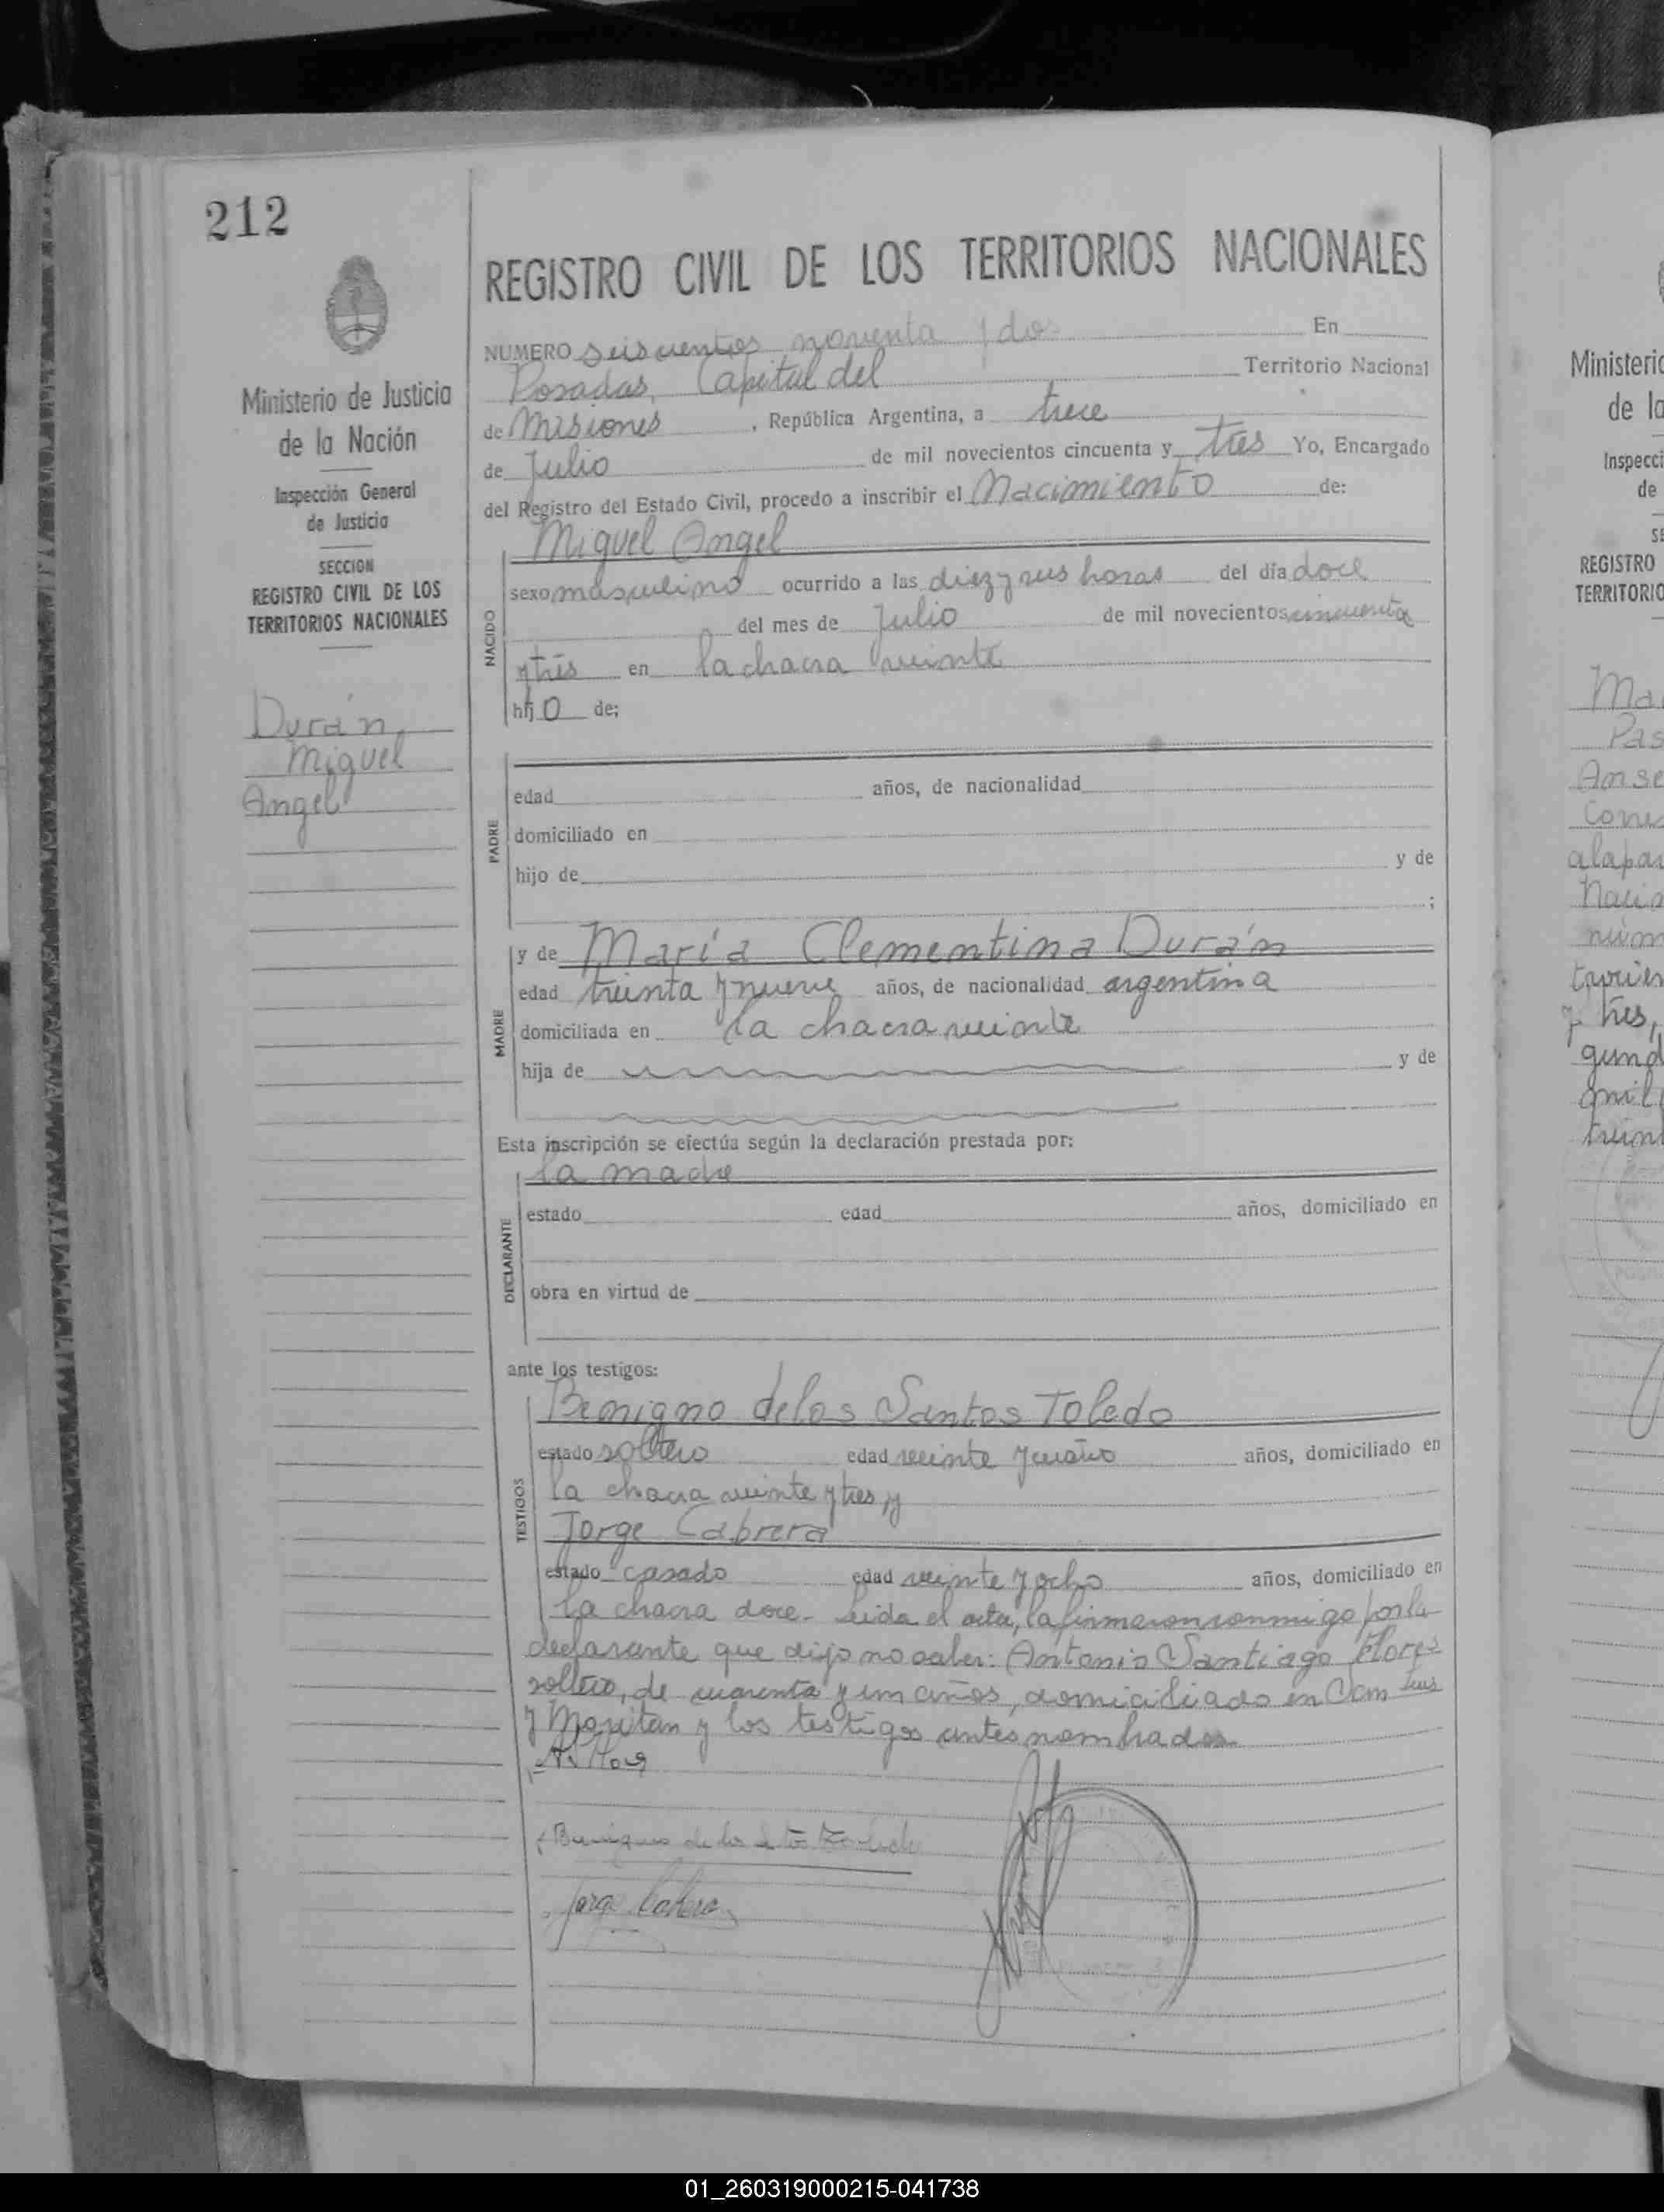 212
REGISTRO CIVIL DE LOS TERRITORIOS NACIONALES
Ministerio de Justicia
de la Nación
Inspección General
de Justicia
SECCION
REGISTRO CIVIL DE LOS
TERRITORIOS NACIONALES
Durán
Miguel
Angel
NUMERO seiscientos noventa y dos En
Posadas, Capital del Territorio Nacional
de Misiones, República Argentina, a trece
de Julio de mil novecientos cincuenta y tres Yo, Encargado
del Registro del Estado Civil, procedo a inscribir el Nacimiento de:
NACIDO
Miguel Angel
sexo masculino ocurrido a las diez y seis horas del día doce
del mes de Julio de mil novecientos cincuenta
y tres en la chacra veinte
hijo de;
PADRE
edad años, de nacionalidad
domiciliado en
hijo de y de
;
MADRE
y de María Clementina Durán
edad treinta y nueve años, de nacionalidad argentina
domiciliada en la chacra veinte
hija de y de
Esta inscripción se efectúa según la declaración prestada por:
DECLARANTE
la madre
estado edad años, domiciliado en
obra en virtud de
ante los testigos:
TESTIGOS
Benigno de los Santos Toledo
estado soltero edad veinte y cuatro años, domiciliado en
la chacra veinte y tres y
Jorge Cabrera
estado casado edad veinte y ocho años, domiciliado en
la chacra doce. Leida el acta, la firmaron conmigo por la
declarante que dijo no saber: Antonio Santiago Flores
soltero, de cuarenta y un años, domiciliado en San Luis
y y los testigos antes nombrados.
Jorge Cabrera
Ministerio
de la
Inspecci
de
REGISTRO
TERRITORIO
01_260319000215-041738